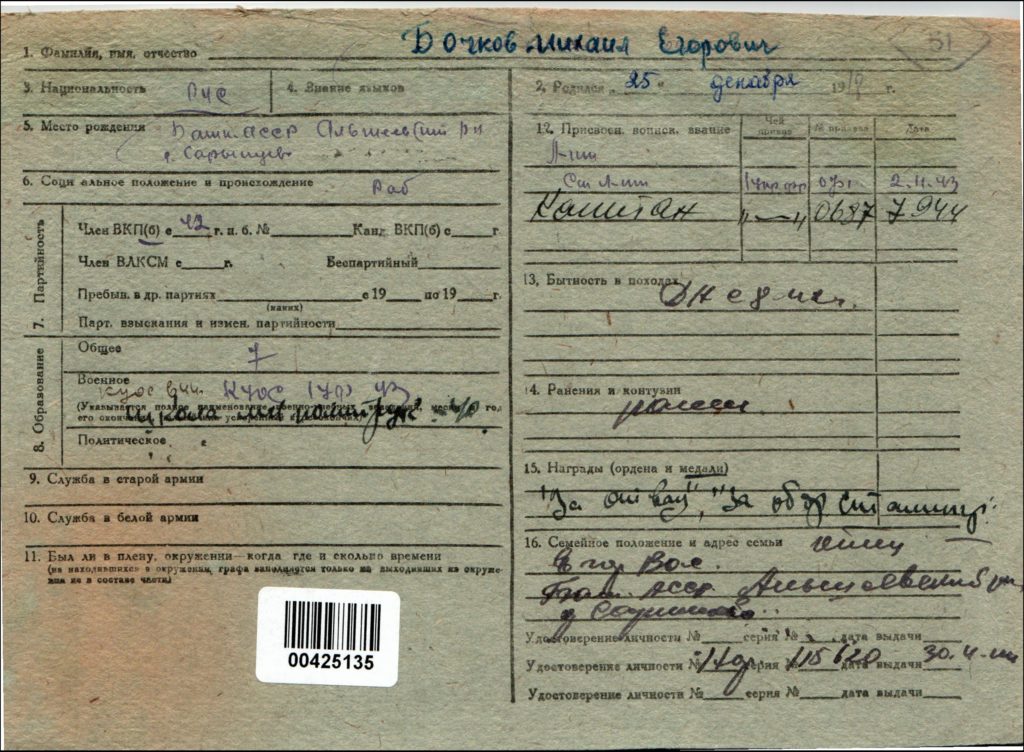 1. Фамилия, имя, отчество Бочков Михаил Егорович
51
3. Национальность Рус
4. Знание языков
2. Родился "25" декабря 19 г.
5. Место рождения Башк. АССР
12. Присвоен. воинск. звание
Чей приказ № приказа Дата
Л-нт
6. Социальное положение и происхождение Раб
Ст Л-нт 2.11.43
Капитан "—" 0687 7 944
7. Партийность
Член ВКП(б) с 42 г. п. б. № Канд. ВКП(б) с г.
Член ВЛКСМ с г. Беспартийный
Пребыв. в др. партиях с 19 по 19 г.
(каких)
Парт. взыскания и измен. партийности
13. Бытность в походах
8. Образование
Общее 7
Военное
КУОС 43
(Указывается полное наименование военно-учебных
школа 40.
Политическое
14. Ранения и контузии
ранен
9. Служба в старой армии
15. Награды (ордена и медали)
"За отвагу", "За обор Сталингр.
10. Служба в белой армии
16. Семейное положение и адрес семьи
11. Был ли в плену, окружении—когда где и сколько времени
(на находившихся в окружении, графа заполняется только на выходивших из окружения не в составе части)
Баш. АССР Альшеевский
Удостоверение личности № серия № дата выдачи
Удостоверение личности № серия № 115620 дата выдачи 30.4
Удостоверение личности № серия № дата выдачи
00425135